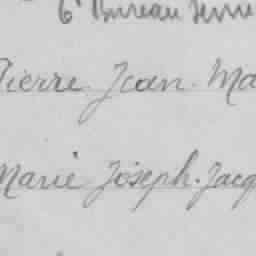 6e Bureau
Pierre Jean Ma
Marie Joseph. Jacq